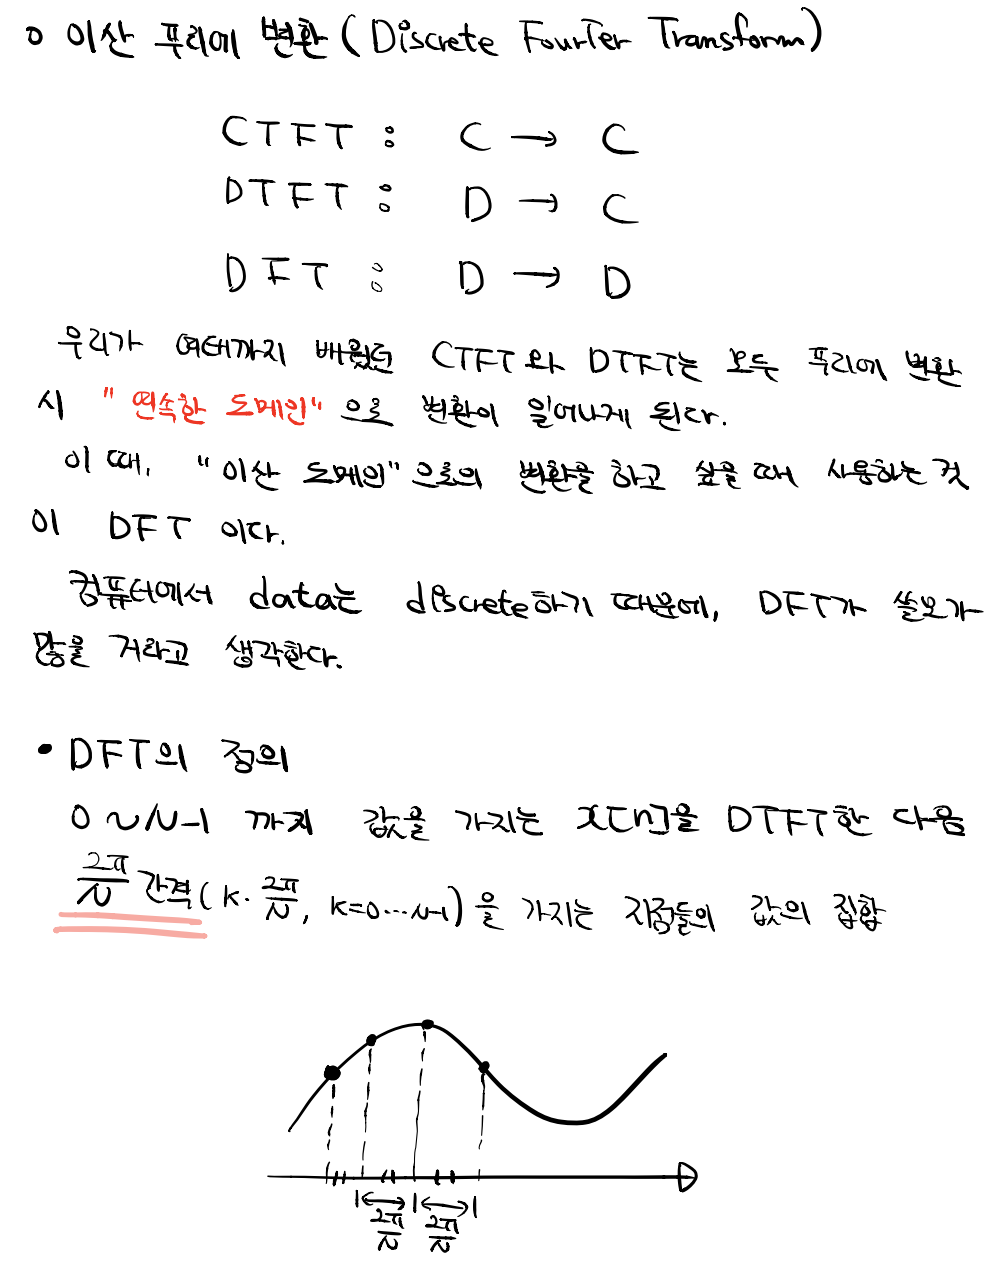 o 이산 푸리에 변환 (Discrete Fourier Transform)
CTFT : C → C
DTFT : D → C
DFT : D → D
우리가 여태까지 배웠던 CTFT와 DTFT는 모두 푸리에 변환
시 "연속한 도메인"으로 변환이 일어나게 된다.
이 때, "이산 도메인"으로의 변환을 하고 싶을 때 사용하는 것
이 DFT 이다.
컴퓨터에서 data는 discrete하기 때문에, DFT가 쓸모가
많을 거라고 생각한다.
• DFT의 정의
0 ~ N-1 까지 값을 가지는 x[n]을 DTFT한 다음
2π/N 간격 (k· 2π/N, k=0…N-1)을 가지는 지점들의 값의 집합
2π/N 2π/N